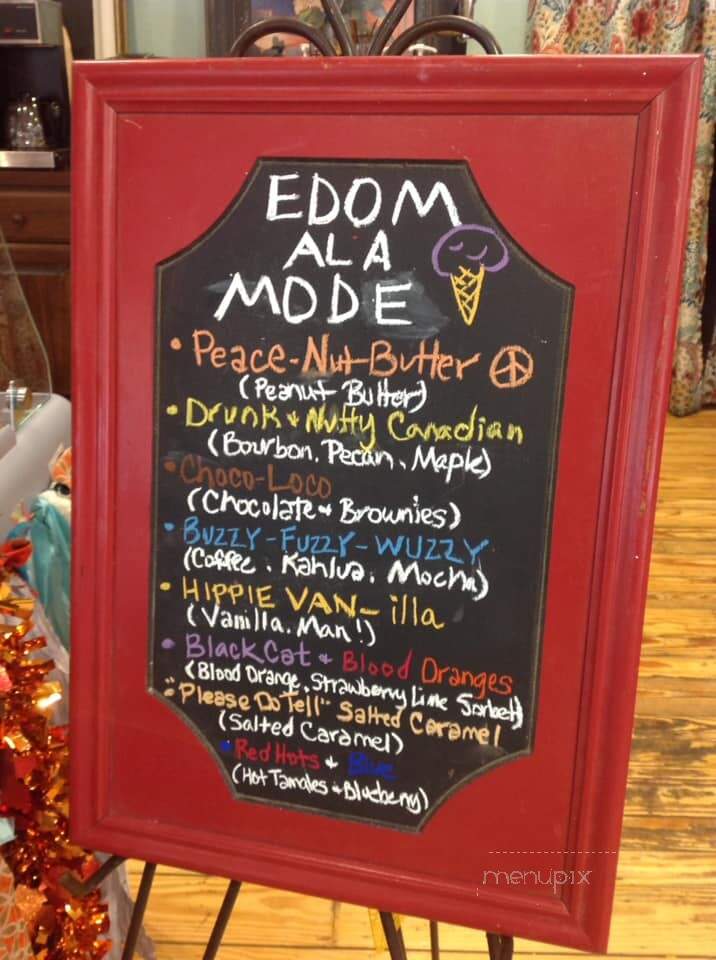 EDOM
ALA
MODE
• Peace-Nut-Butter
(Peanut Butter)
• Drunk & Nutty Canadian
(Bourbon, Pecan, Maple)
• Choco-Loco
(Chocolate & Brownies)
• BUZZY-FUZZY-WUZZY
(Coffee, Kahlua, Mocha)
• HIPPIE VAN-illa
(Vanilla, Man!)
• Black Cat & Blood Oranges
(Blood Orange, Strawberry Lime Sorbet)
• "Please Do Tell" Salted Caramel
(Salted Caramel)
• Red Hots & Blue
(Hot Tamales & Blueberry)
menupix